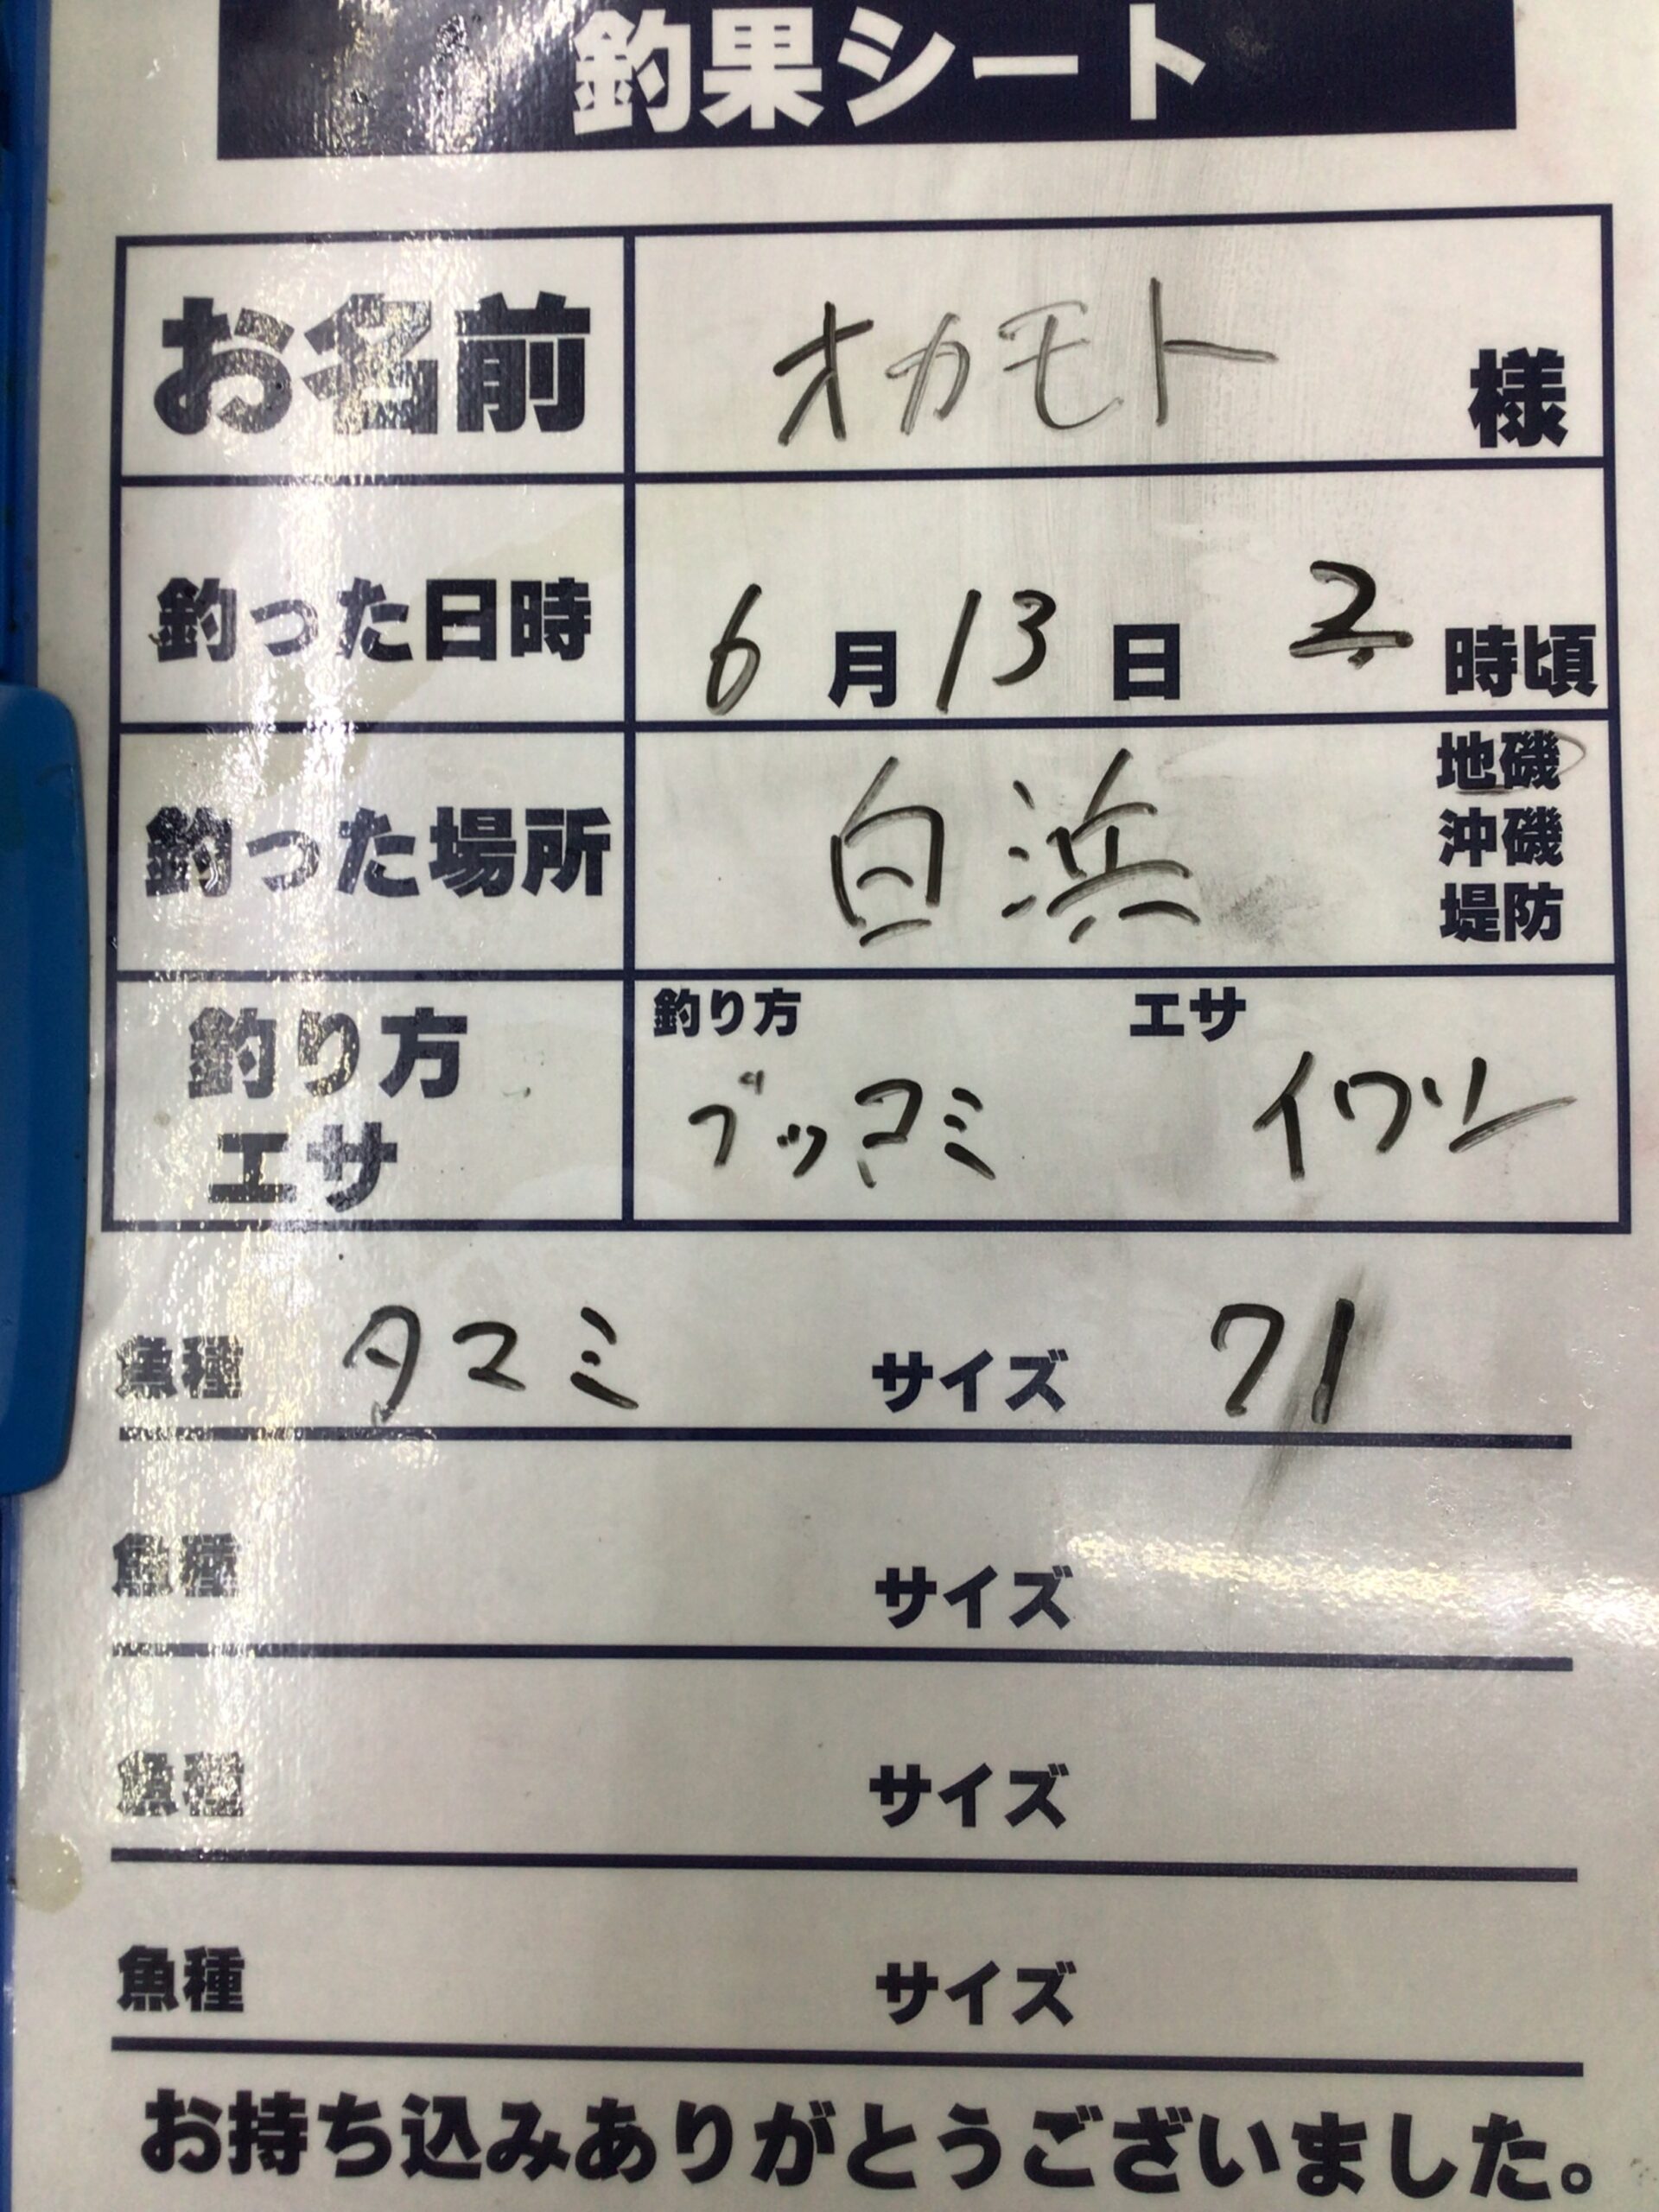 釣果シート
お名前 オカモト 様
釣った日時 6月13日 2時頃
釣った場所 白浜 地磯
沖磯
堤防
釣り方 エサ
釣り方 ブッコミ イワソー
エサ
魚種 タマミ サイズ 71
魚種 サイズ
魚種 サイズ
魚種 サイズ
お持ち込みありがとうございました。